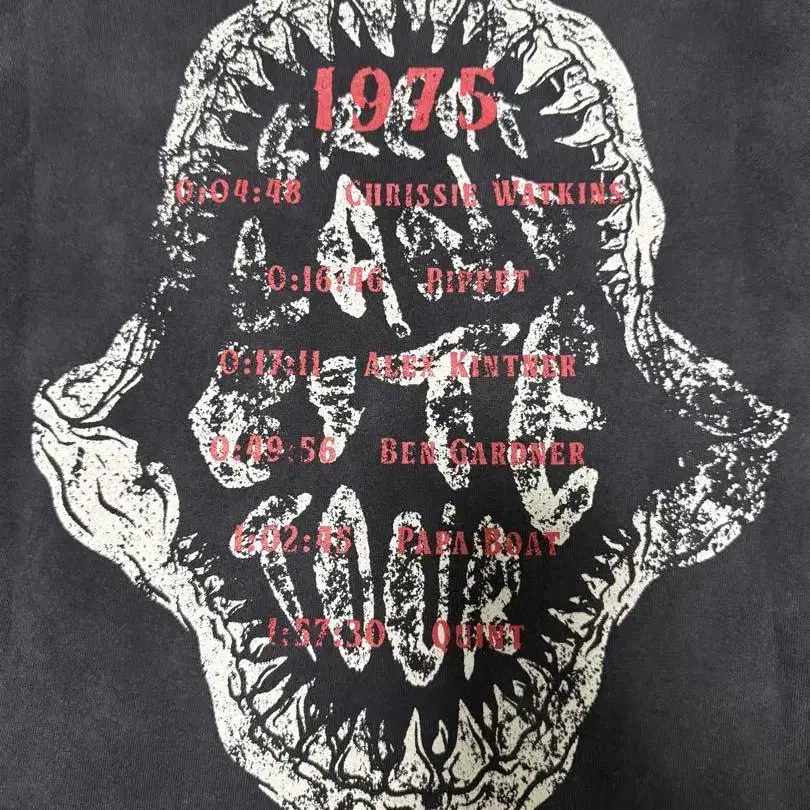 1975
0:04:48 Chrissie Watkins
0:16:46 Pippet
0:17:11 Alex Kintner
0:49:56 Ben Gardner
1:02:45 Papa Boat
1:57:30 Quint
BITE
TOUR